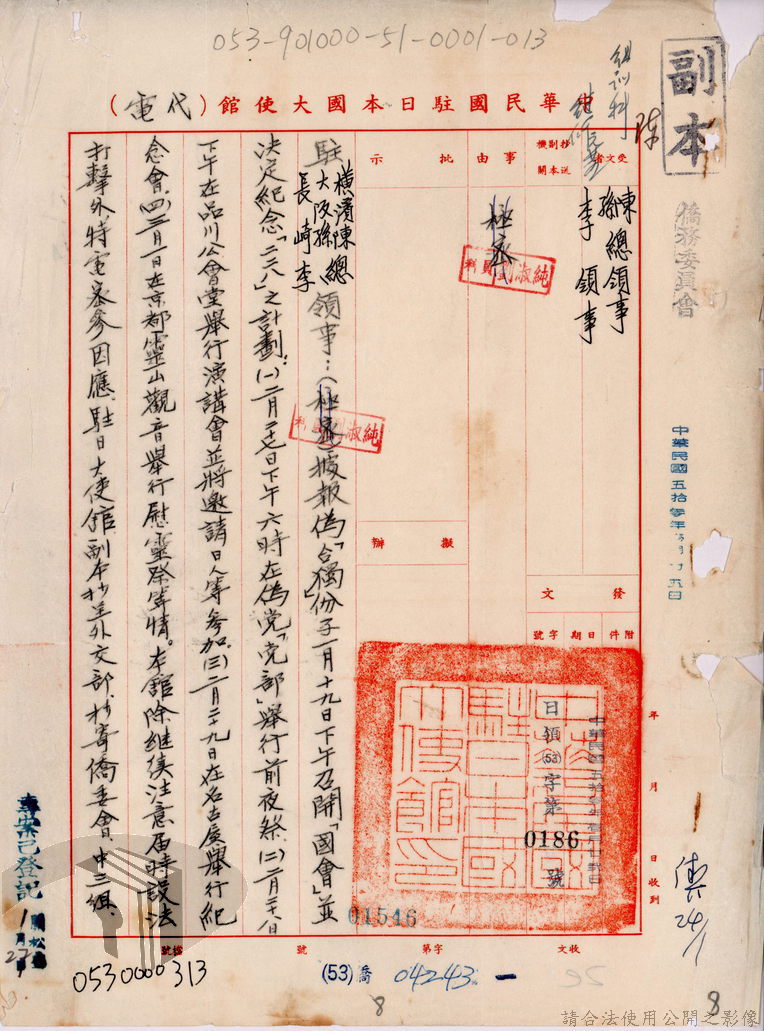 053-901000-51-0001-013
副本
組訓科
陳
僑務委員會
中華民國駐日本國大使館（代電）
受文者
抄送副本機關
事由
批示
陳總領事
孫
李領事
極密
純淑劉員科
擬辦
發文
附件
日期
字號
中華民國駐日本國大使館印
日領(53)字第
0186
號
駐橫濱陳總
大阪孫總
長崎李
領事：(極密)據報偽「台獨」份子一月十九日下午召開「國會」並
決定紀念「二二八」之計劃：(一)二月廿七日下午六時在偽党「党部」舉行前夜祭(二)二月廿八日
下午在品川公會堂舉行演講會並將邀請日人等參加(三)二月二十九日在名古屋舉行紀
念會(四)三月一日在京都靈山觀音舉行慰靈祭等情。本館除继续注意届時設法
打擊外，特電密參因應。駐日大使館副本抄呈外交部，抄寄僑委會、中三組、
純淑劉員科
中華民國五拾參年
年
月
日收到
24/1
專案已登記
1月27
01546
收文
字第
號
檔號
(53)僑 04243 一
0530000313
8
8
請合法使用公開之影像